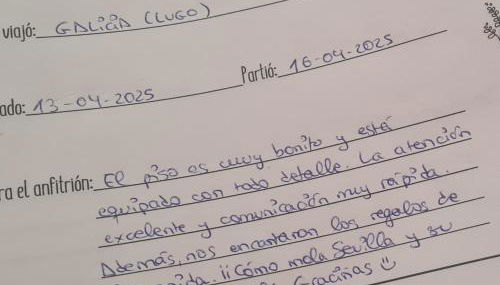 viajó: GALICIA (LUGO)
Partió: 16-04-2025
ado: 13-04-2025
ra el anfitrión: El piso es muy bonito y está
equipado con todo detalle. La atención
excelente y comunicación muy rápida.
Además, nos encantaron los regalos de
ida. ¡¡Cómo mola Sevilla y su
Graciñas